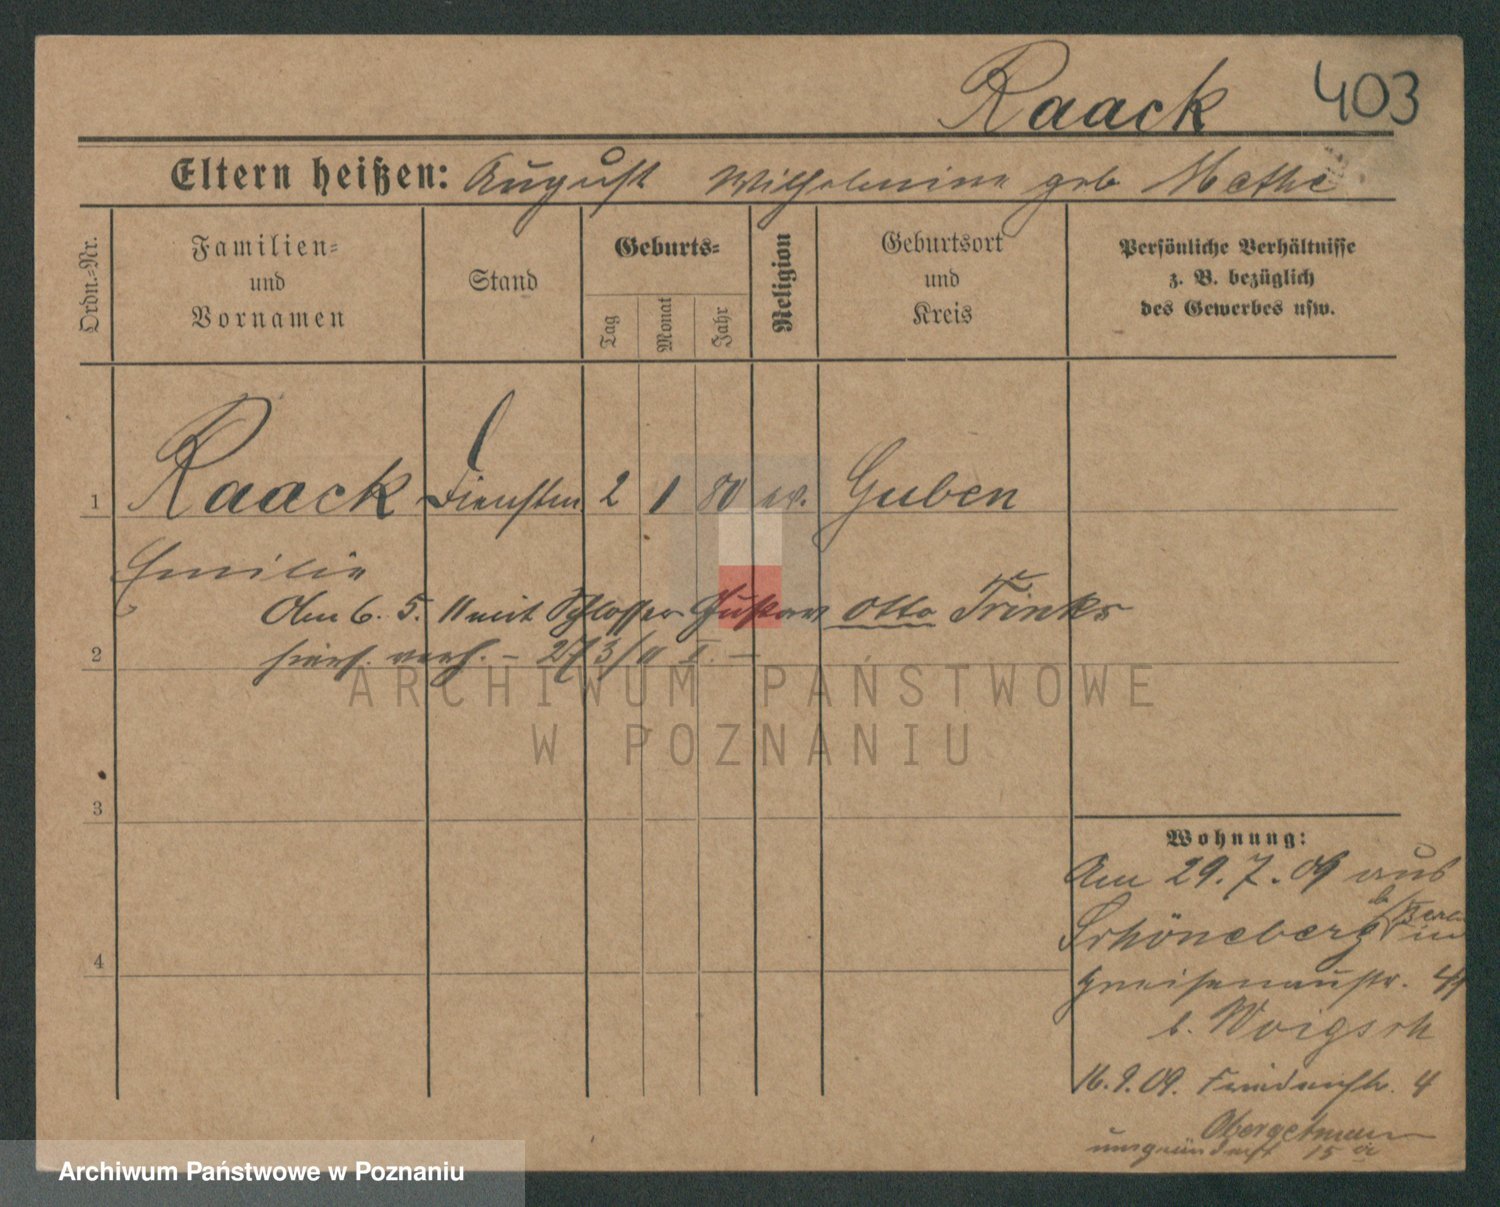 Raack 403
Eltern heißen: August Wilhelmine geb Methe
Ordn.=Nr.
Familien=
und
Vornamen
Stand
Geburts=
Tag
Monat
Jahr
Religion
Geburtsort
und
Kreis
Persönliche Verhältnisse
z. B. bezüglich
des Gewerbes usw.
1 Raack Dienstm 2 1 80 ev. Guben
Emilie
Am 6. 5. 11 mit Schlosser Gustav Otto Trinks
hiers. verh. – 273/11 I. –
2
3
4
Wohnung:
Am 29. 7. 09 aus
Schöneberg b/Berlin
Gneisenaustr. 44
b. Woigsch
16. 9. 09. 4
15
ARCHIWUM PAŃSTWOWE
W POZNANIU
Archiwum Państwowe w Poznaniu